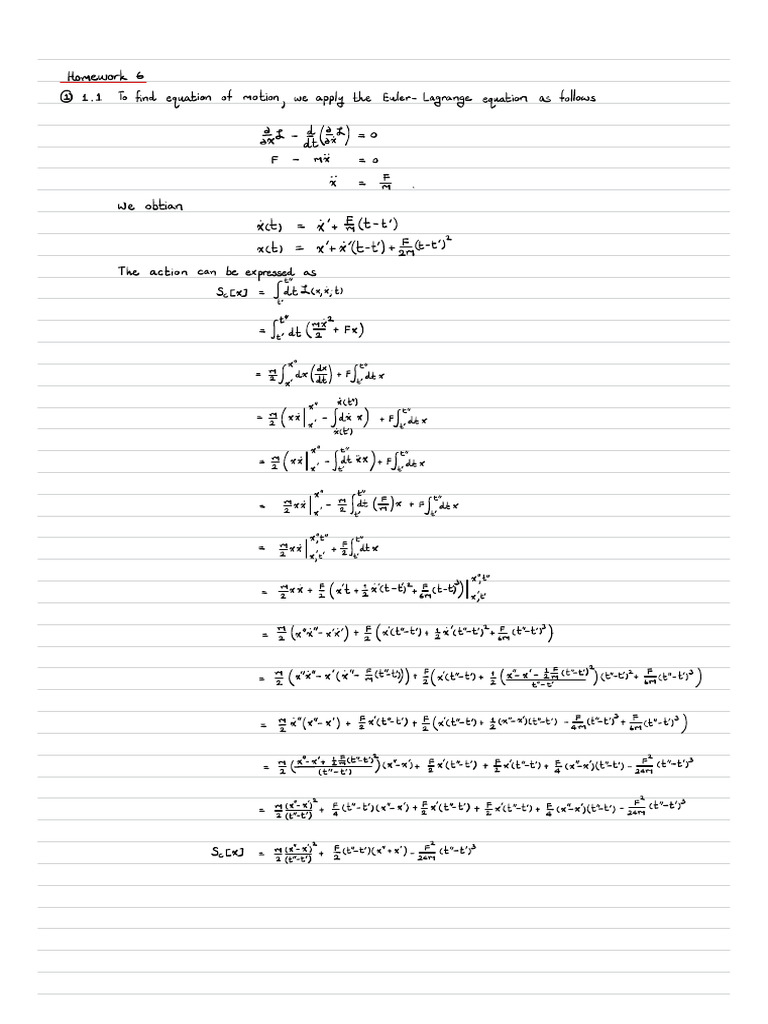 Homework 6
① 1.1 To find equation of motion, we apply the Euler-Lagrange equation as follows
∂/∂x ℒ − d/dt (∂/∂ẋ ℒ) = 0
F − mẍ = 0
ẍ = F/M .
We obtian
ẋ(t) = ẋ' + F/M (t−t')
x(t) = x' + ẋ'(t−t') + F/2M (t−t')²
The action can be expressed as
S_c[x] = ∫_{t'}^{t''} dt ℒ(x,ẋ;t)
= ∫_{t'}^{t''} dt (mẋ²/2 + Fx)
= m/2 ∫_{x'}^{x''} dx (dx/dt) + F∫_{t'}^{t''} dt x
= m/2 (xẋ|_{x'}^{x''} − ∫_{ẋ(t')}^{ẋ(t'')} dẋ x) + F∫_{t'}^{t''} dt x
= m/2 (xẋ|_{x'}^{x''} − ∫_{t'}^{t''} dt ẍx) + F∫_{t'}^{t''} dt x
= m/2 xẋ|_{x'}^{x''} − m/2 ∫_{t'}^{t''} dt (F/M)x + F∫_{t'}^{t''} dt x
= m/2 xẋ|_{x',t'}^{x'',t''} + F/2 ∫_{t'}^{t''} dt x
= m/2 xẋ + F/2 (x't + 1/2 ẋ'(t−t')² + F/6M (t−t')³)|_{x',t'}^{x'',t''}
= m/2 (x''ẋ'' − x'ẋ') + F/2 (x'(t''−t') + 1/2 ẋ'(t''−t')² + F/6M (t''−t')³)
= m/2 (x''ẋ'' − x'(ẋ'' − F/M (t''−t'))) + F/2 (x'(t''−t') + 1/2 ((x''−x'−1/2 F/M (t''−t')²)/(t''−t')) (t''−t')² + F/6M (t''−t')³)
= m/2 ẋ''(x''−x') + F/2 x'(t''−t') + F/2 (x'(t''−t') + 1/2 (x''−x')(t''−t') − F/4M (t''−t')³ + F/6M (t''−t')³)
= m/2 ((x''−x'+1/2 F/M (t''−t')²)/(t''−t')) (x''−x') + F/2 x'(t''−t') + F/2 x'(t''−t') + F/4 (x''−x')(t''−t') − F²/24M (t''−t')³
= m/2 (x''−x')²/(t''−t') + F/4 (t''−t')(x''−x') + F/2 x'(t''−t') + F/2 x'(t''−t') + F/4 (x''−x')(t''−t') − F²/24M (t''−t')³
S_c[x] = m/2 (x''−x')²/(t''−t') + F/2 (t''−t')(x''+x') − F²/24M (t''−t')³